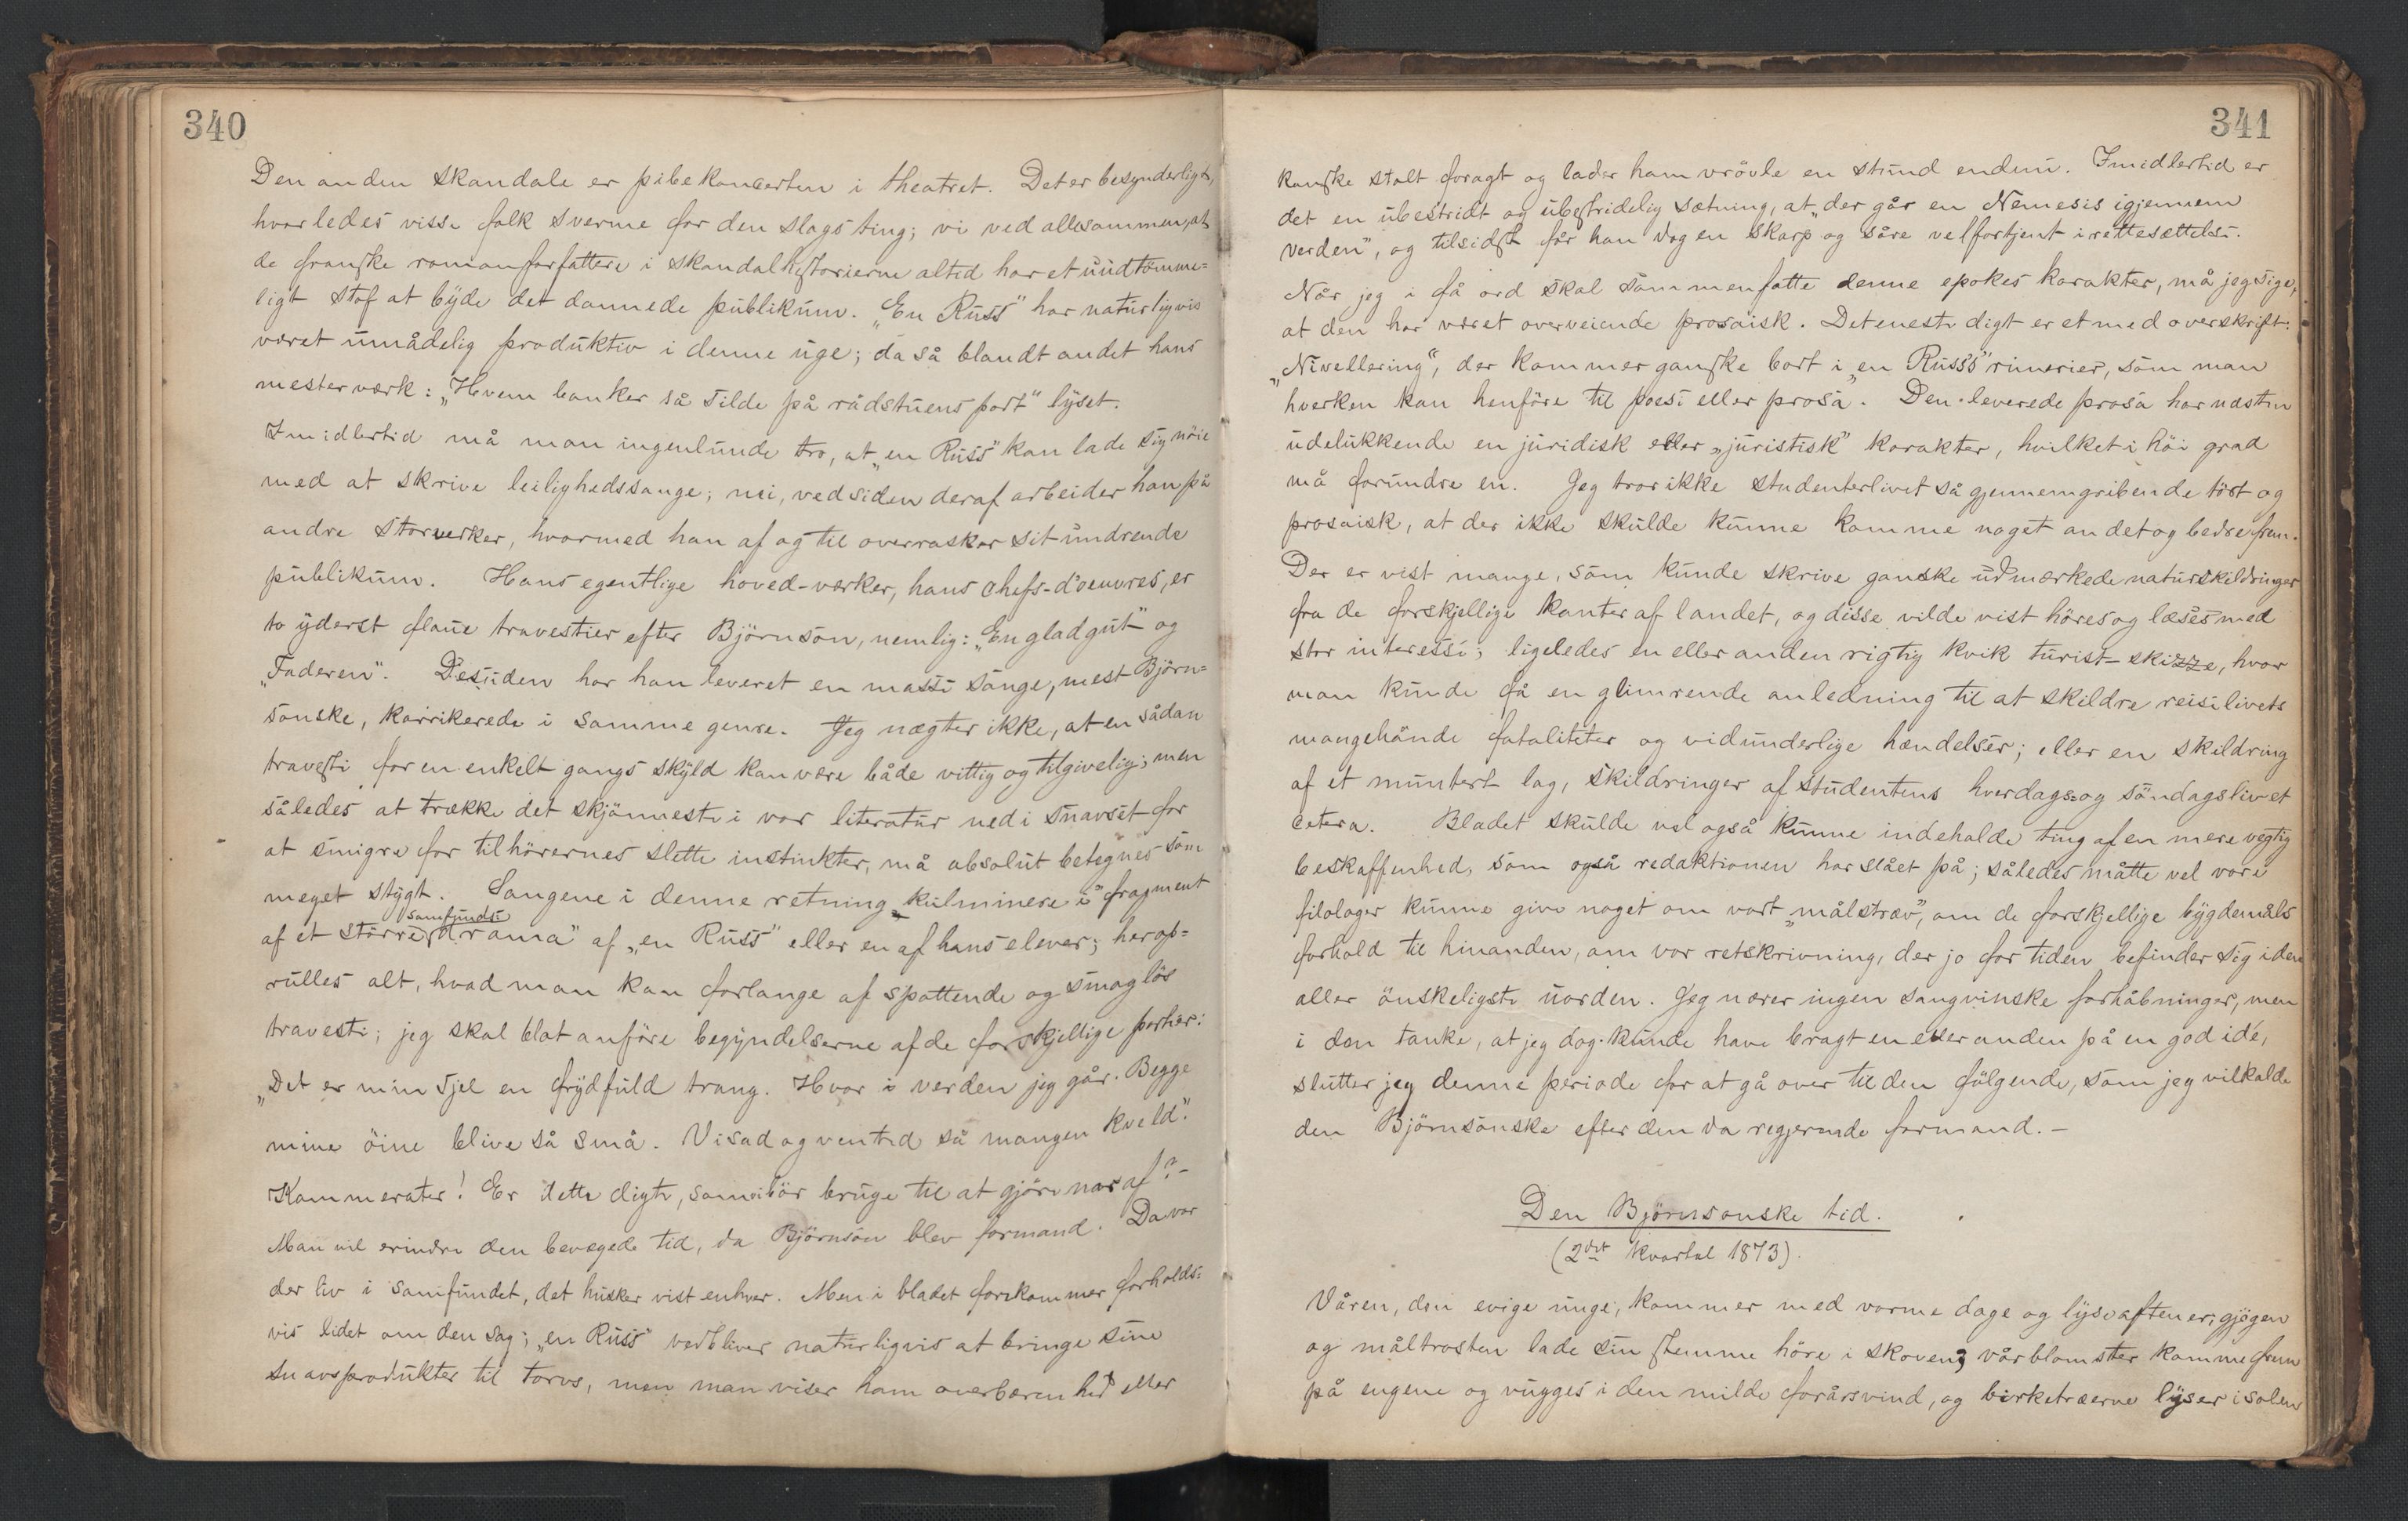 340
Den anden skandale er pibekonserten i theatret. Det er besynderligt,
hvorledes visse folk sverme for den slags ting; vi ved allesammen, at
de franske romanforfattere i skandalhistorierne altid har et uudtömme=
ligt stof at byde det dannede publikum. „En Russ" har naturligvis
været umådelig produktiv i denne uge; da så blandt andet hans
mesterværk: „Hvem banker så silde på rådstuens port" lyset.
Imidlertid må man ingenlunde tro, at „en Russ" kan lade sig nöie
med at skrive leilighedssange; nei, ved siden deraf arbeider han på
andre storverker, hvormed han af og til overrasker sit undrende
publikum. Hans egentlige hoved-værker, hans chefs-d'oeuvres, er
to yderst flaue travestier efter Björnson, nemlig: „En glad gut" og
„Faderen". Desuden har han leveret en masse sange, mest Björn=
sonske, karrikerede i samme genre. Jeg nægter ikke, at en sådan
travesti for en enkelt gangs skyld kan være både vittig og tilgivelig; men
således at trække det skjönneste i vor literatur ned i snavset for
at smigre for tilhörernes slette instinkter, må absolut betegnes som
meget stygt. Sangene i denne retning kulminere i „fragment
af et större samfundsdrama" af „en Russ" eller en af hans elever; her op=
rulles alt, hvad man kan forlange af spottende og smaglös
travesti; jeg skal blot anföre begyndelserne af de forskjellige partier:
„Det er min sjel en frydfuld trang. Hvor i verden jeg går. Begge
mine öine blive så små. Vi sad og vented så mangen kveld."
Kammerater! Er dette digte, som vi bör bruge til at gjöre nar af?–
Man vil erindre den bevægede tid, da Björnson blev formand. Da var
der liv i samfundet, det husker vist enhver. Men i bladet forekommer forholds=
vis lidet om den sag; „en Russ" vedbliver naturligvis at bringe sine
snavsprodukter til torvs, men man viser ham overbærenhed eller
341
kanske stolt foragt og lader ham vrövle en stund endnu. Imidlertid er
det en ubestridt og ubestridelig sætning, at „der går en Nemesis igjennem
verden", og tilsidst får han dog en skarp og såre velfortjent irettesættelse.
Når jeg i få ord skal sammenfatte denne epokes karakter, må jeg sige,
at den har været overveiende prosaisk. Det eneste digt er et med overskrift:
„Nivellering", der kommer ganske bort i „en Russ's" rimerier, som man
hverken kan henföre til poesi eller prosa. Den leverede prosa har næsten
udelukkende en juridisk eller „juristisk" karakter, hvilket i höi grad
må forundre en. Jeg tror ikke studenterlivet så gjennemgribende tört og
prosaisk, at der ikke skulde kunne komme noget andet og bedre frem.
Der er vist mange, som kunde skrive ganske udmærkede naturskildringer
fra de forskjellige kanter af landet, og disse vilde vist höres og læses med
stor interesse; ligeledes en eller anden rigtig kvik turist-skizze, hvor
man kunde få en glimrende anledning til at skildre reiselivets
mangehånde fataliteter og vidunderlige hændelser; eller en skildring
af et muntert lag, skildringer af studentens hverdags= og söndagsliv et
cetera. Bladet skulde vel også kunne indeholde ting af en mere vegtig
beskaffenhed, som også redaktionen har slået på; således måtte vel vore
filologer kunne give noget om vort „målstræv", om de forskjellige bygdemåls
forhold til hinanden, om vor retskrivning, der jo for tiden befinder sig i den
aller önskeligste uorden. Jeg nærer ingen sangvinske forhåbninger, men
i den tanke, at jeg dog kunde have bragt en eller anden på en god ide,
slutter jeg denne periode for at gå over til den fölgende, som jeg vil kalde
den Björnsonske efter den da regjerende formand.–
Den Björnsonske tid.
(2det kvartal 1873).
Våren, den evige unge, kommer med varme dage og lyse aftener; gjögen
og måltrosten lade sin stemme höre i skoven; vårblomster komme frem
på engene og vugges i den milde forårsvind, og birketræerne lyser i solen